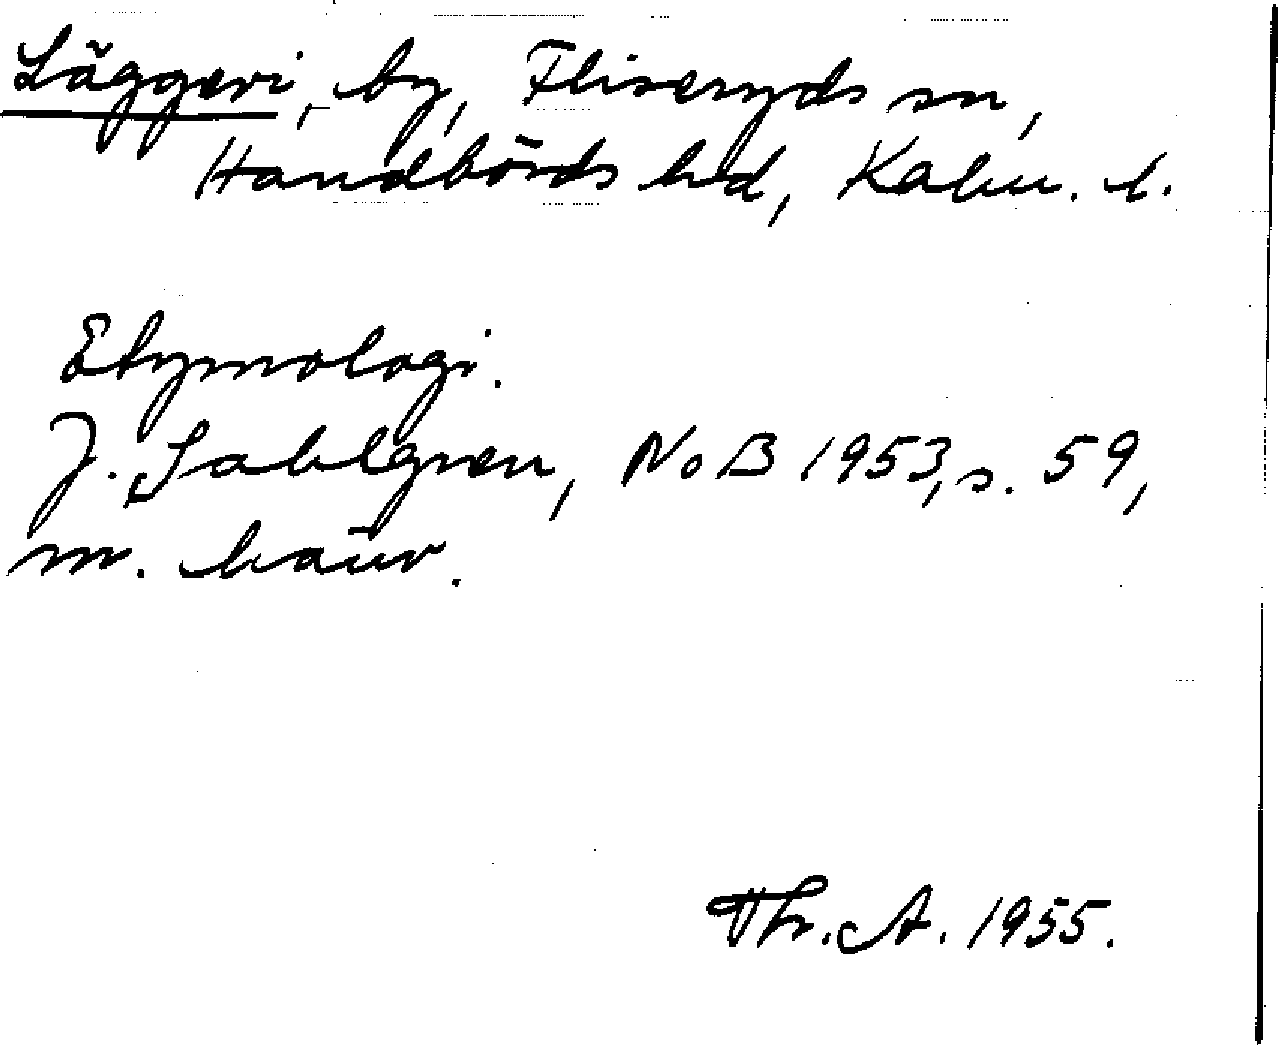 Läggeri, by, Fliseryds sn,
Handbörds hd, Kalm. l.
Etymologi.
J. Sahlgren, NoB 1953, s. 59,
m. hänv.
Th. A. 1955.